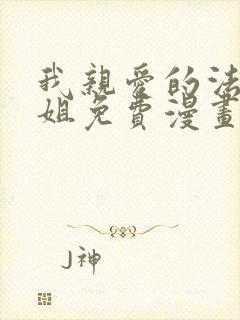 我親愛的法
姐免費漫畫
J神